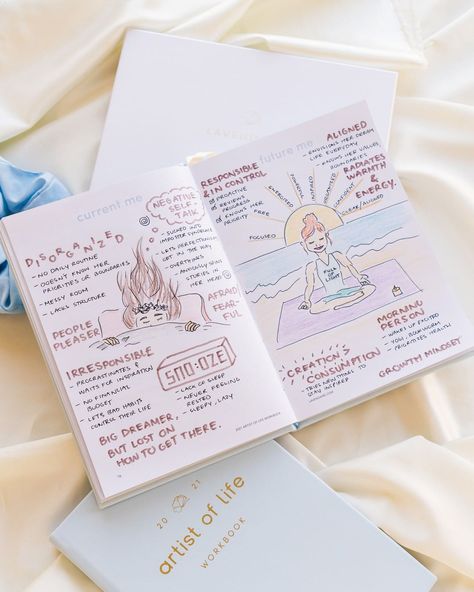 LAVEND
current me
DISORGANIZED
- NO DAILY ROUTINE
- DOESN'T KNOW HER
PRIORITIES OR BOUNDARIES
- MESSY ROOM
- LACKS STRUCTURE
NEGATIVE
SELF-
TALK
- SUCKED INTO
IMPOSTER SYNDROME
- LETS PERFECTIONISM
GET IN THE WAY
- OVERTHINKS
- ANXIOUSLY SPINS
STORIES IN
HER HEAD
PEOPLE
PLEASER
AFRAID
FEAR-
FUL
IRRESPONSIBLE
- PROCRASTINATES &
WAITS FOR INSPIRATION
- NO FINANCIAL
BUDGET
- LETS BAD HABITS
CONTROL THEIR LIFE
SNO-OZE
- LACK OF SLEEP
- NEVER FEELING
RESTED
- SLEEPY, LAZY
BIG DREAMER,
BUT LOST ON
HOW TO GET THERE.
2021 ARTIST OF LIFE WORKBOOK
future me
RESPONSIBLE
& IN CONTROL
PROACTIVE
REVIEWS
PROGRESS
KNOWS HER
PRIORITY
FREE
FOCUSED
INSPIRED
CONFIDENT
CLEAR/ALIGNED
ALIGNED
- ENVISIONS HER DREAM
LIFE EVERYDAY
- KNOWS HER VALUES,
BOUNDARIES
RADIATES
WARMTH
& ENERGY.
FULL OF
LIGHT
MORNING
PERSON
- WAKES UP EXCITED
- YOGI, BOOKWORM
- PRIORITIZES HEALTH
CREATION >
CONSUMPTION
- TRIES NEW THINGS TO
STAY INSPIRED
GROWTH MINDSET
2021
artist of life
WORKBOOK